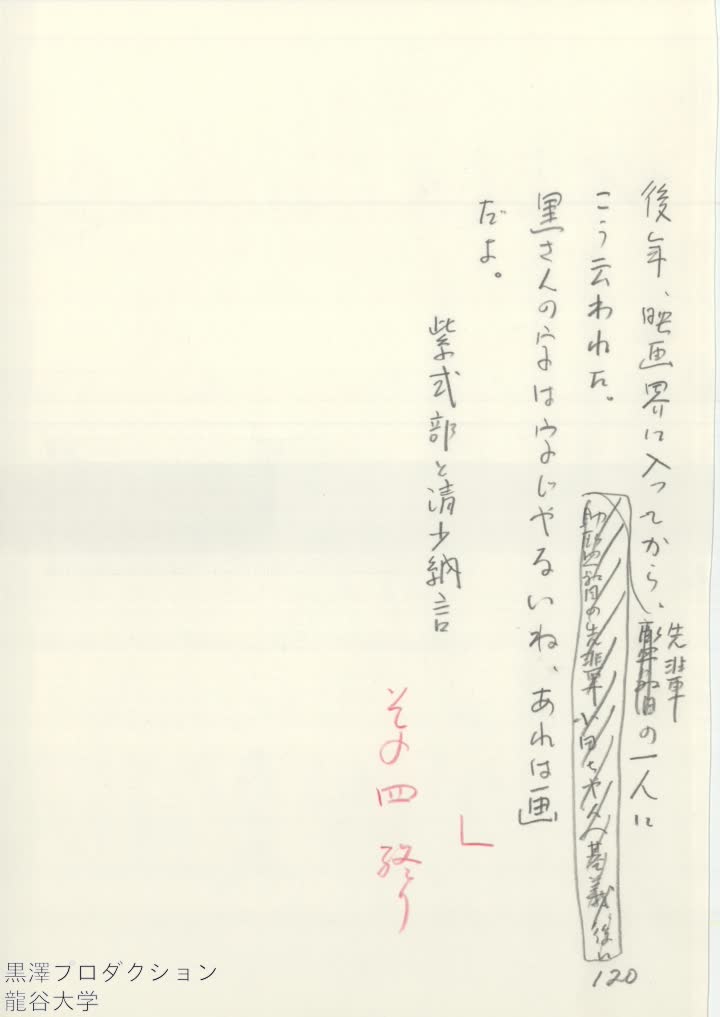 後年、映画界に入ってから、先輩の一人に
こう云われた。
黒さんの字は字じゃないね、あれは画
だよ。
紫式部と清少納言
その四 終り
120
黒澤プロダクション
龍谷大学